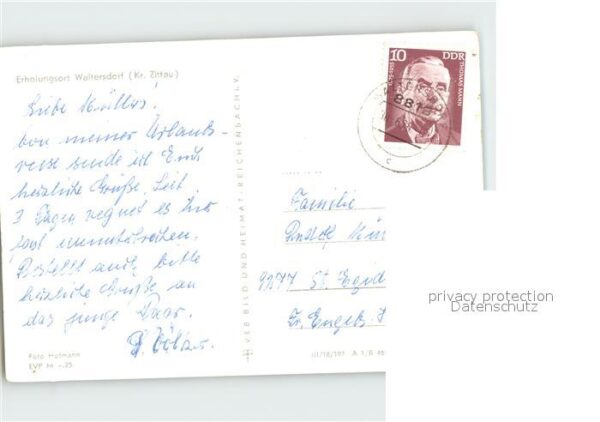 Erholungsort Waltersdorf (Kr. Zittau)
Liebe Müllers!
Von meiner Urlaubs
reise sende ich Euch
herzliche Grüße. Seit
3 Tagen regnet es hier
fast ununterbrochen.
Bestellt auch bitte
herzliche Grüße an
das junge Paar.
Foto Hofmann
EVP M -.25
VEB BILD UND HEIMAT · REICHENBACH i. V.
10
DDR
THOMAS MANN
1875-1955
881
c
Familie
Rudolf Mü
St. Egid
Fr. Engels-
III/18/197 A 1/B
privacy protection
Datenschutz